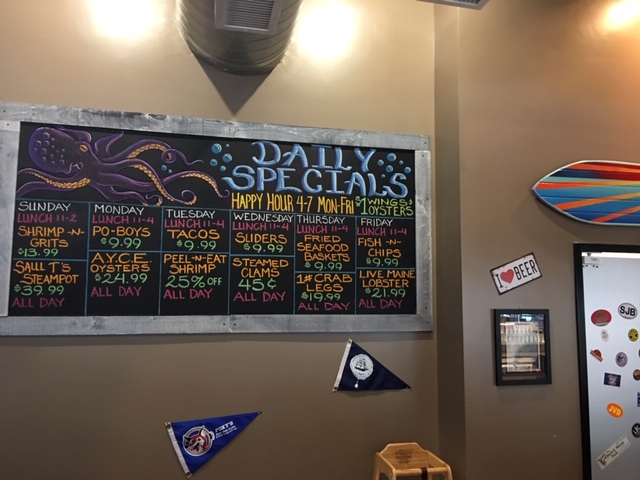 DAILY
SPECIALS
HAPPY HOUR 4-7 MON-FRI
$1 WINGS &
OYSTERS
SUNDAY
LUNCH 11-2
SHRIMP-N-
GRITS
$13.99
SAUL T'S
STEAMPOT
$39.99
ALL DAY
MONDAY
LUNCH 11-4
PO-BOYS
$9.99
A.Y.C.E.
OYSTERS
$24.99
ALL DAY
TUESDAY
LUNCH 11-4
TACOS
$9.99
PEEL-N-EAT
SHRIMP
25% OFF
ALL DAY
WEDNESDAY
LUNCH 11-4
SLIDERS
$9.99
STEAMED
CLAMS
45¢
ALL DAY
THURSDAY
LUNCH 11-4
FRIED
SEAFOOD
BASKETS
$9.99
1# CRAB
LEGS
$19.99
ALL DAY
FRIDAY
LUNCH 11-4
FISH-N-
CHIPS
$9.99
LIVE MAINE
LOBSTER
$21.99
ALL DAY
I BEER
SJB
JVD